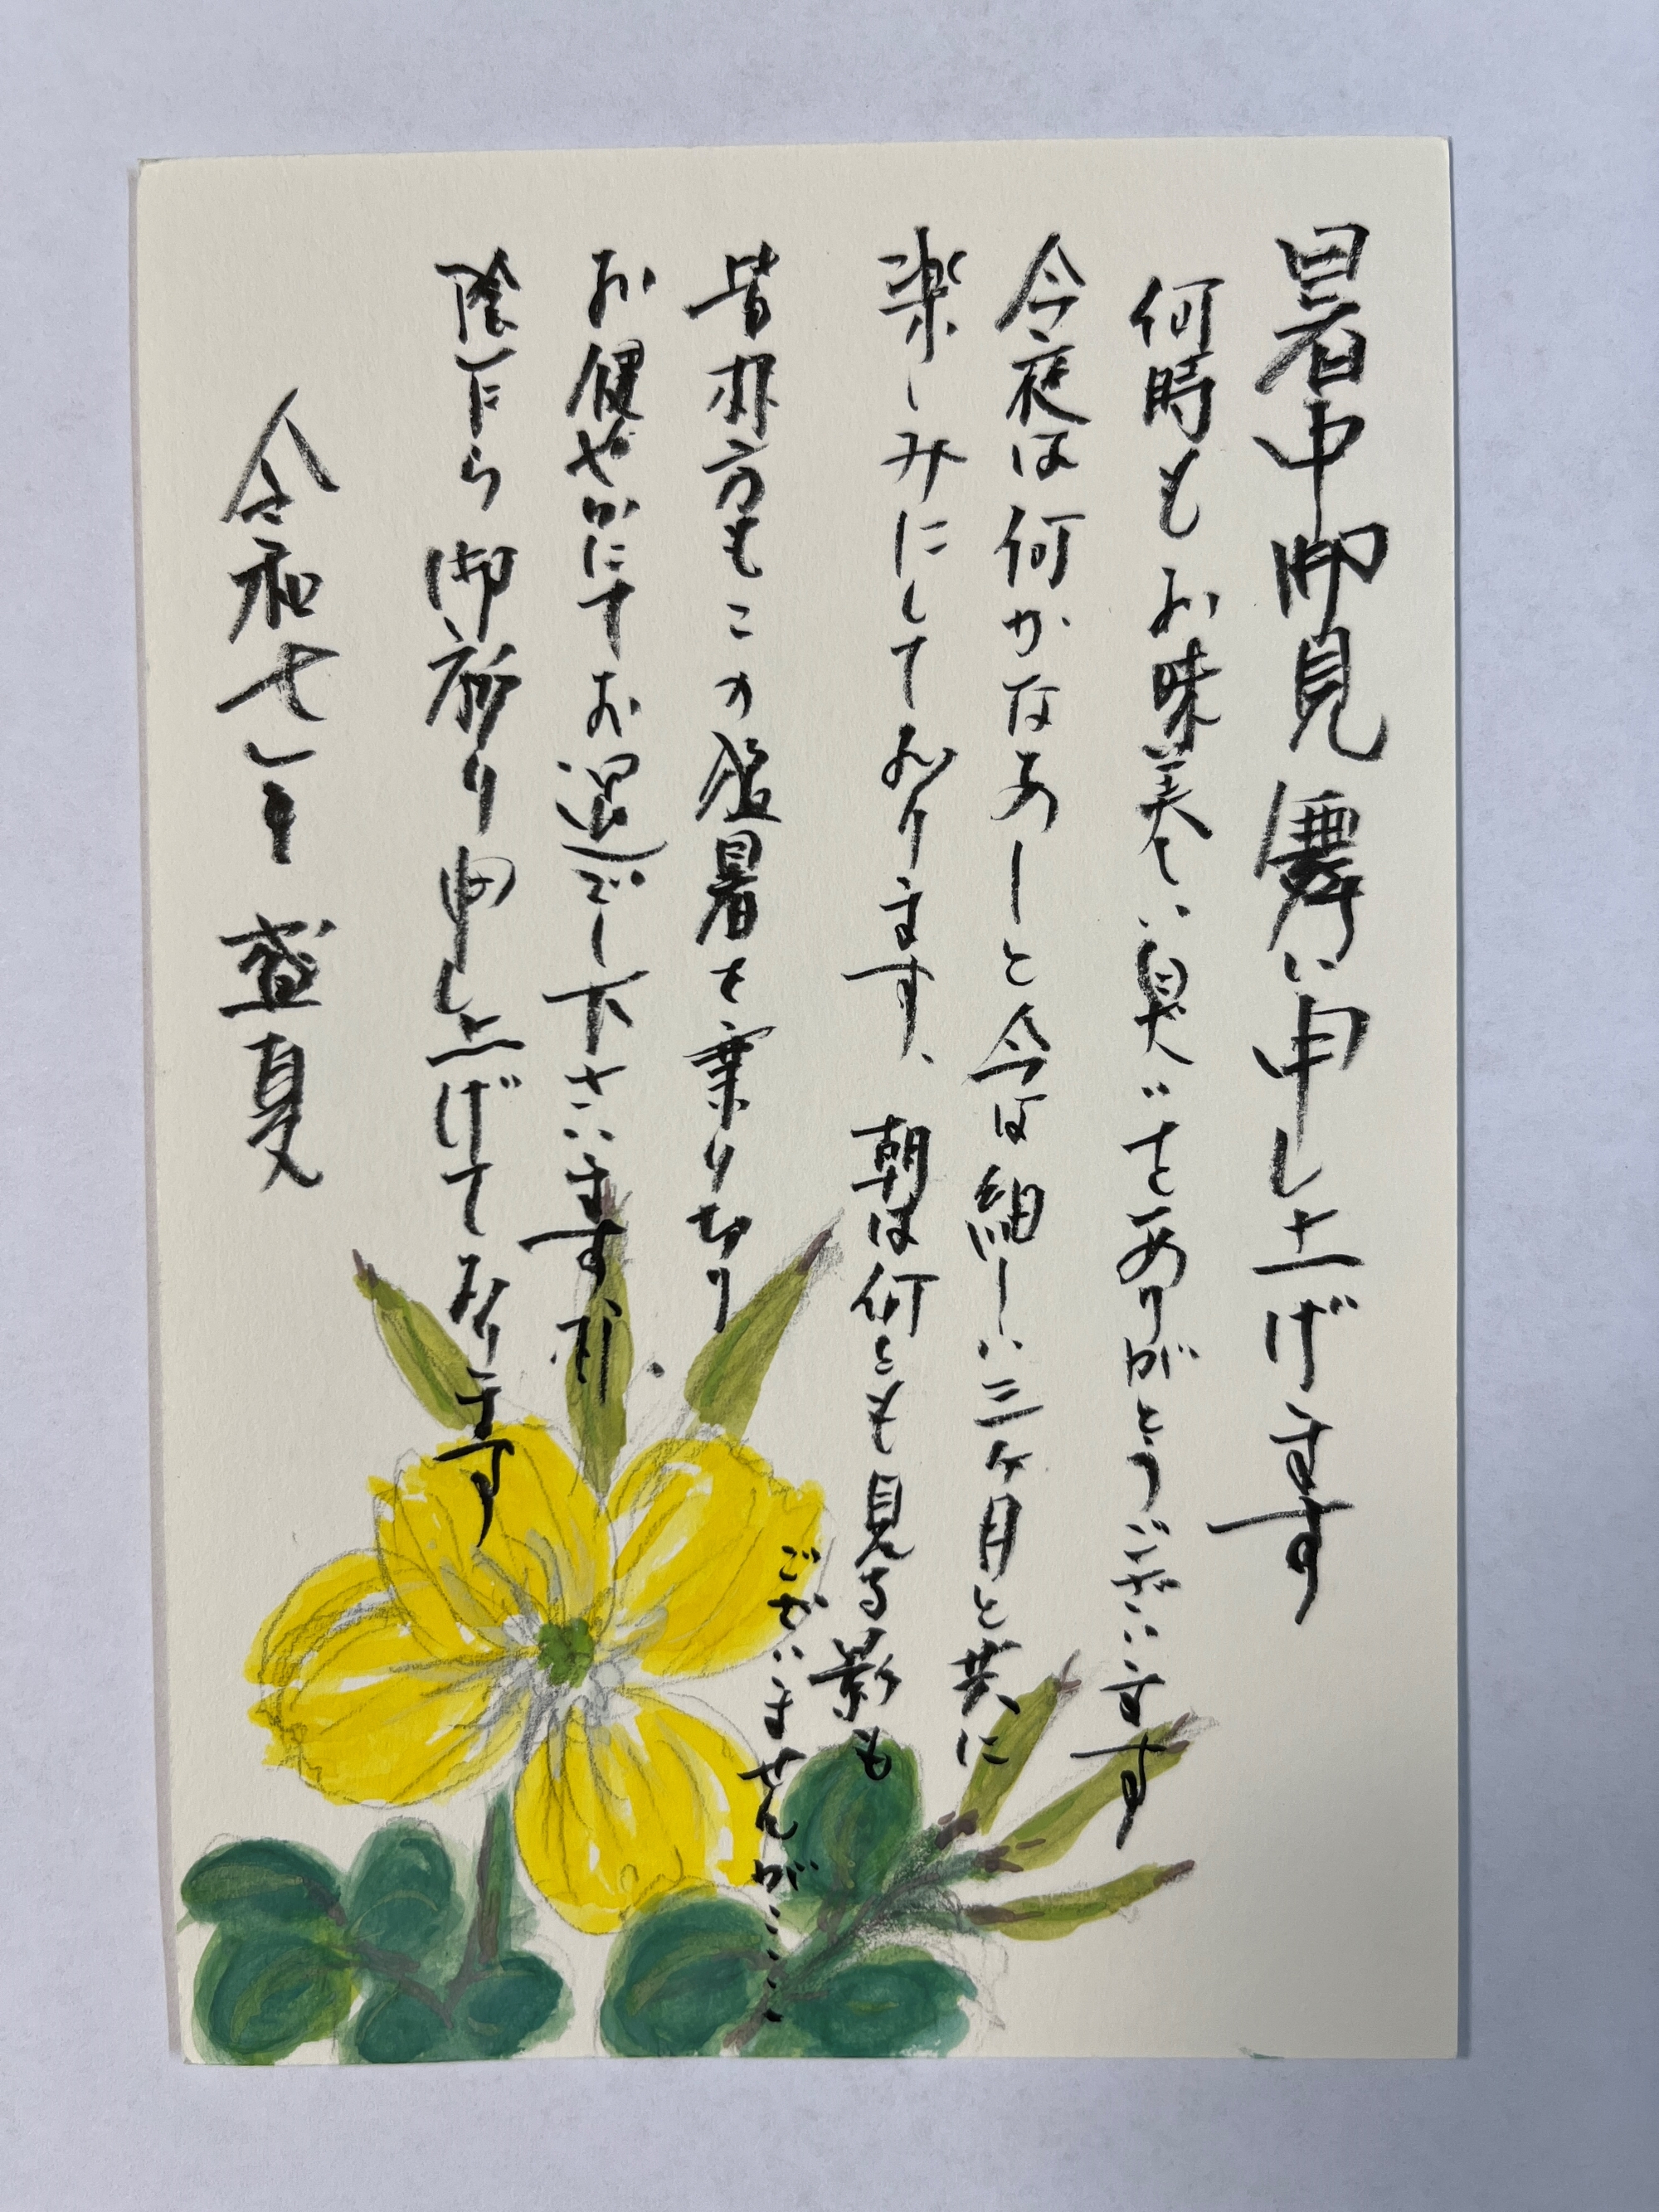 暑中御見舞い申し上げます
何時もお味美しい奥だよをありがとうございます
今夜は何かなあーと今は細ーい三ヶ月と共に
楽しみにしております、朝は何とも見る影も
ございませんが……
皆様方もこの猛暑を乗り切り
お健やかにてお過ごし下さいますよう
陰ながら御祈り申し上げております
令和七年 盛夏